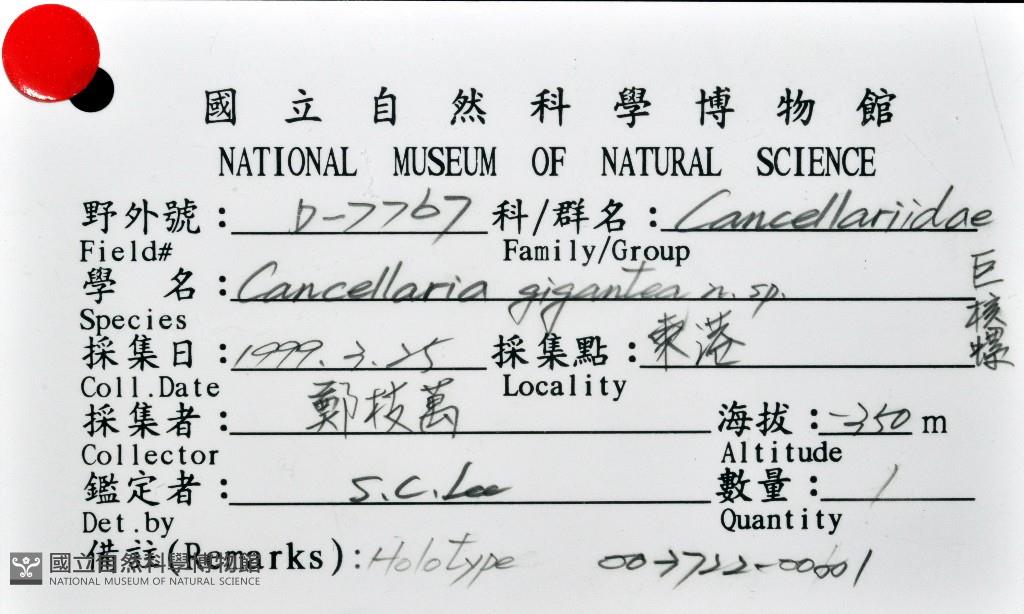 國立自然科學博物館
NATIONAL MUSEUM OF NATURAL SCIENCE
野外號: D-7767 科/群名: Cancellariidae
Field# Family/Group
學 名: Cancellaria gigantea n. sp. 巨核螺
Species
採集日: 1999.3.25 採集點: 東港
Coll.Date Locality
採集者: 鄭枝萬 海拔: -350 m
Collector Altitude
鑑定者: S.C.Lee 數量: 1
Det.by Quantity
備註(Remarks): Holotype 003722-00001
國立自然科學博物館
NATIONAL MUSEUM OF NATURAL SCIENCE